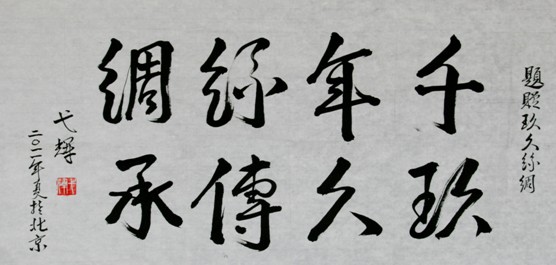 題贈玖久絲綢
千年絲綢
玖久傳承
弋輝
二〇一一年夏於北京